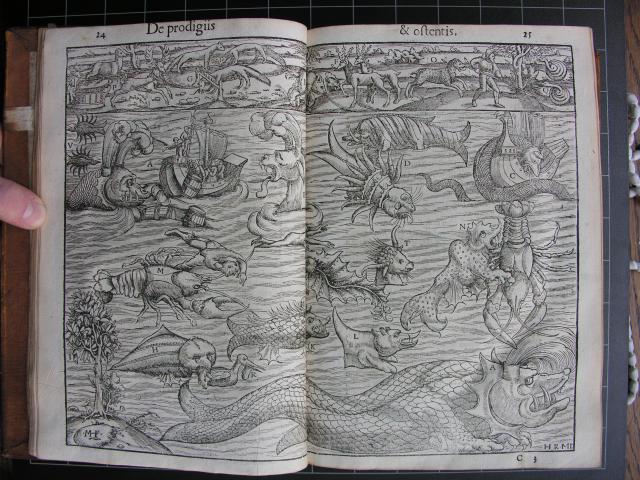 24
De prodigiis
& ostentis.
25
G
O
V
A
D
N
T
M
H
K
L
A
MF
HRMD
C 3